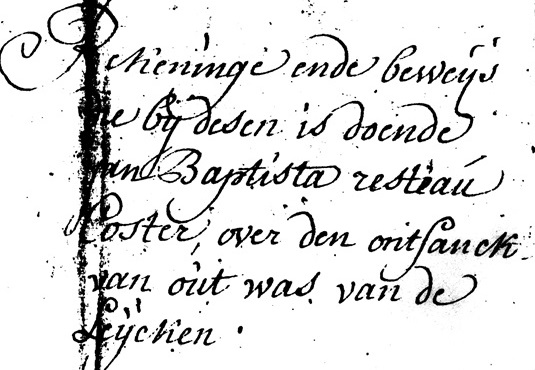 Rekeninge ende beweijs
die bij desen is doende
Jan Baptista resteau
Coster, over den ontfanck
van out was van de
Leijcken.